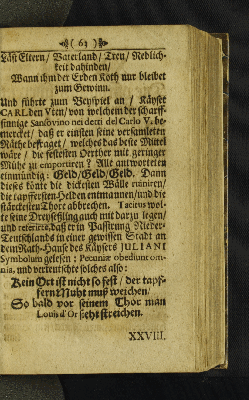 ( 63 )
Läst Eltern/ Vaterland/ Treu/ Redlich-
keit dahinden/
Wann ihm der Erden Koth nur bleibet
zum Gewinn.
Und führte zum Beyspiel an / Käyser
CARL den Vten/ von welchem der scharff-
sinnige Sansovino nei detti del Carlo V. be-
mercket/ daß er einsten seine versamleten
Räthe befraget / welches das beste Mittel
wäre / die festesten Oerther mit geringer
Mühe zu emportiren? Alle antworteten
einmündig: Geld/Geld/Geld. Dann
dieses könte die dickesten Wälle ruiniren/
die tapffersten Helden entmannen/und die
stärckesten Thore abbrechen. Tacitus wol-
te seine Dreyseßling auch mit darzu legen/
und referirte, daß er in Passirung Nieder-
Teutschlands in einer gewissen Stadt an
dem Rath-Hause des Käysers JULIANI
Symbolum gelesen: Pecuniæ obediunt om-
nia, und verteutschte solches also:
Kein Ort ist nicht so fest/ der tapf-
fern Muht muß weichen/
So bald vor seinem Thor man
Louis d'Or siehet streichen.
XXVIII.